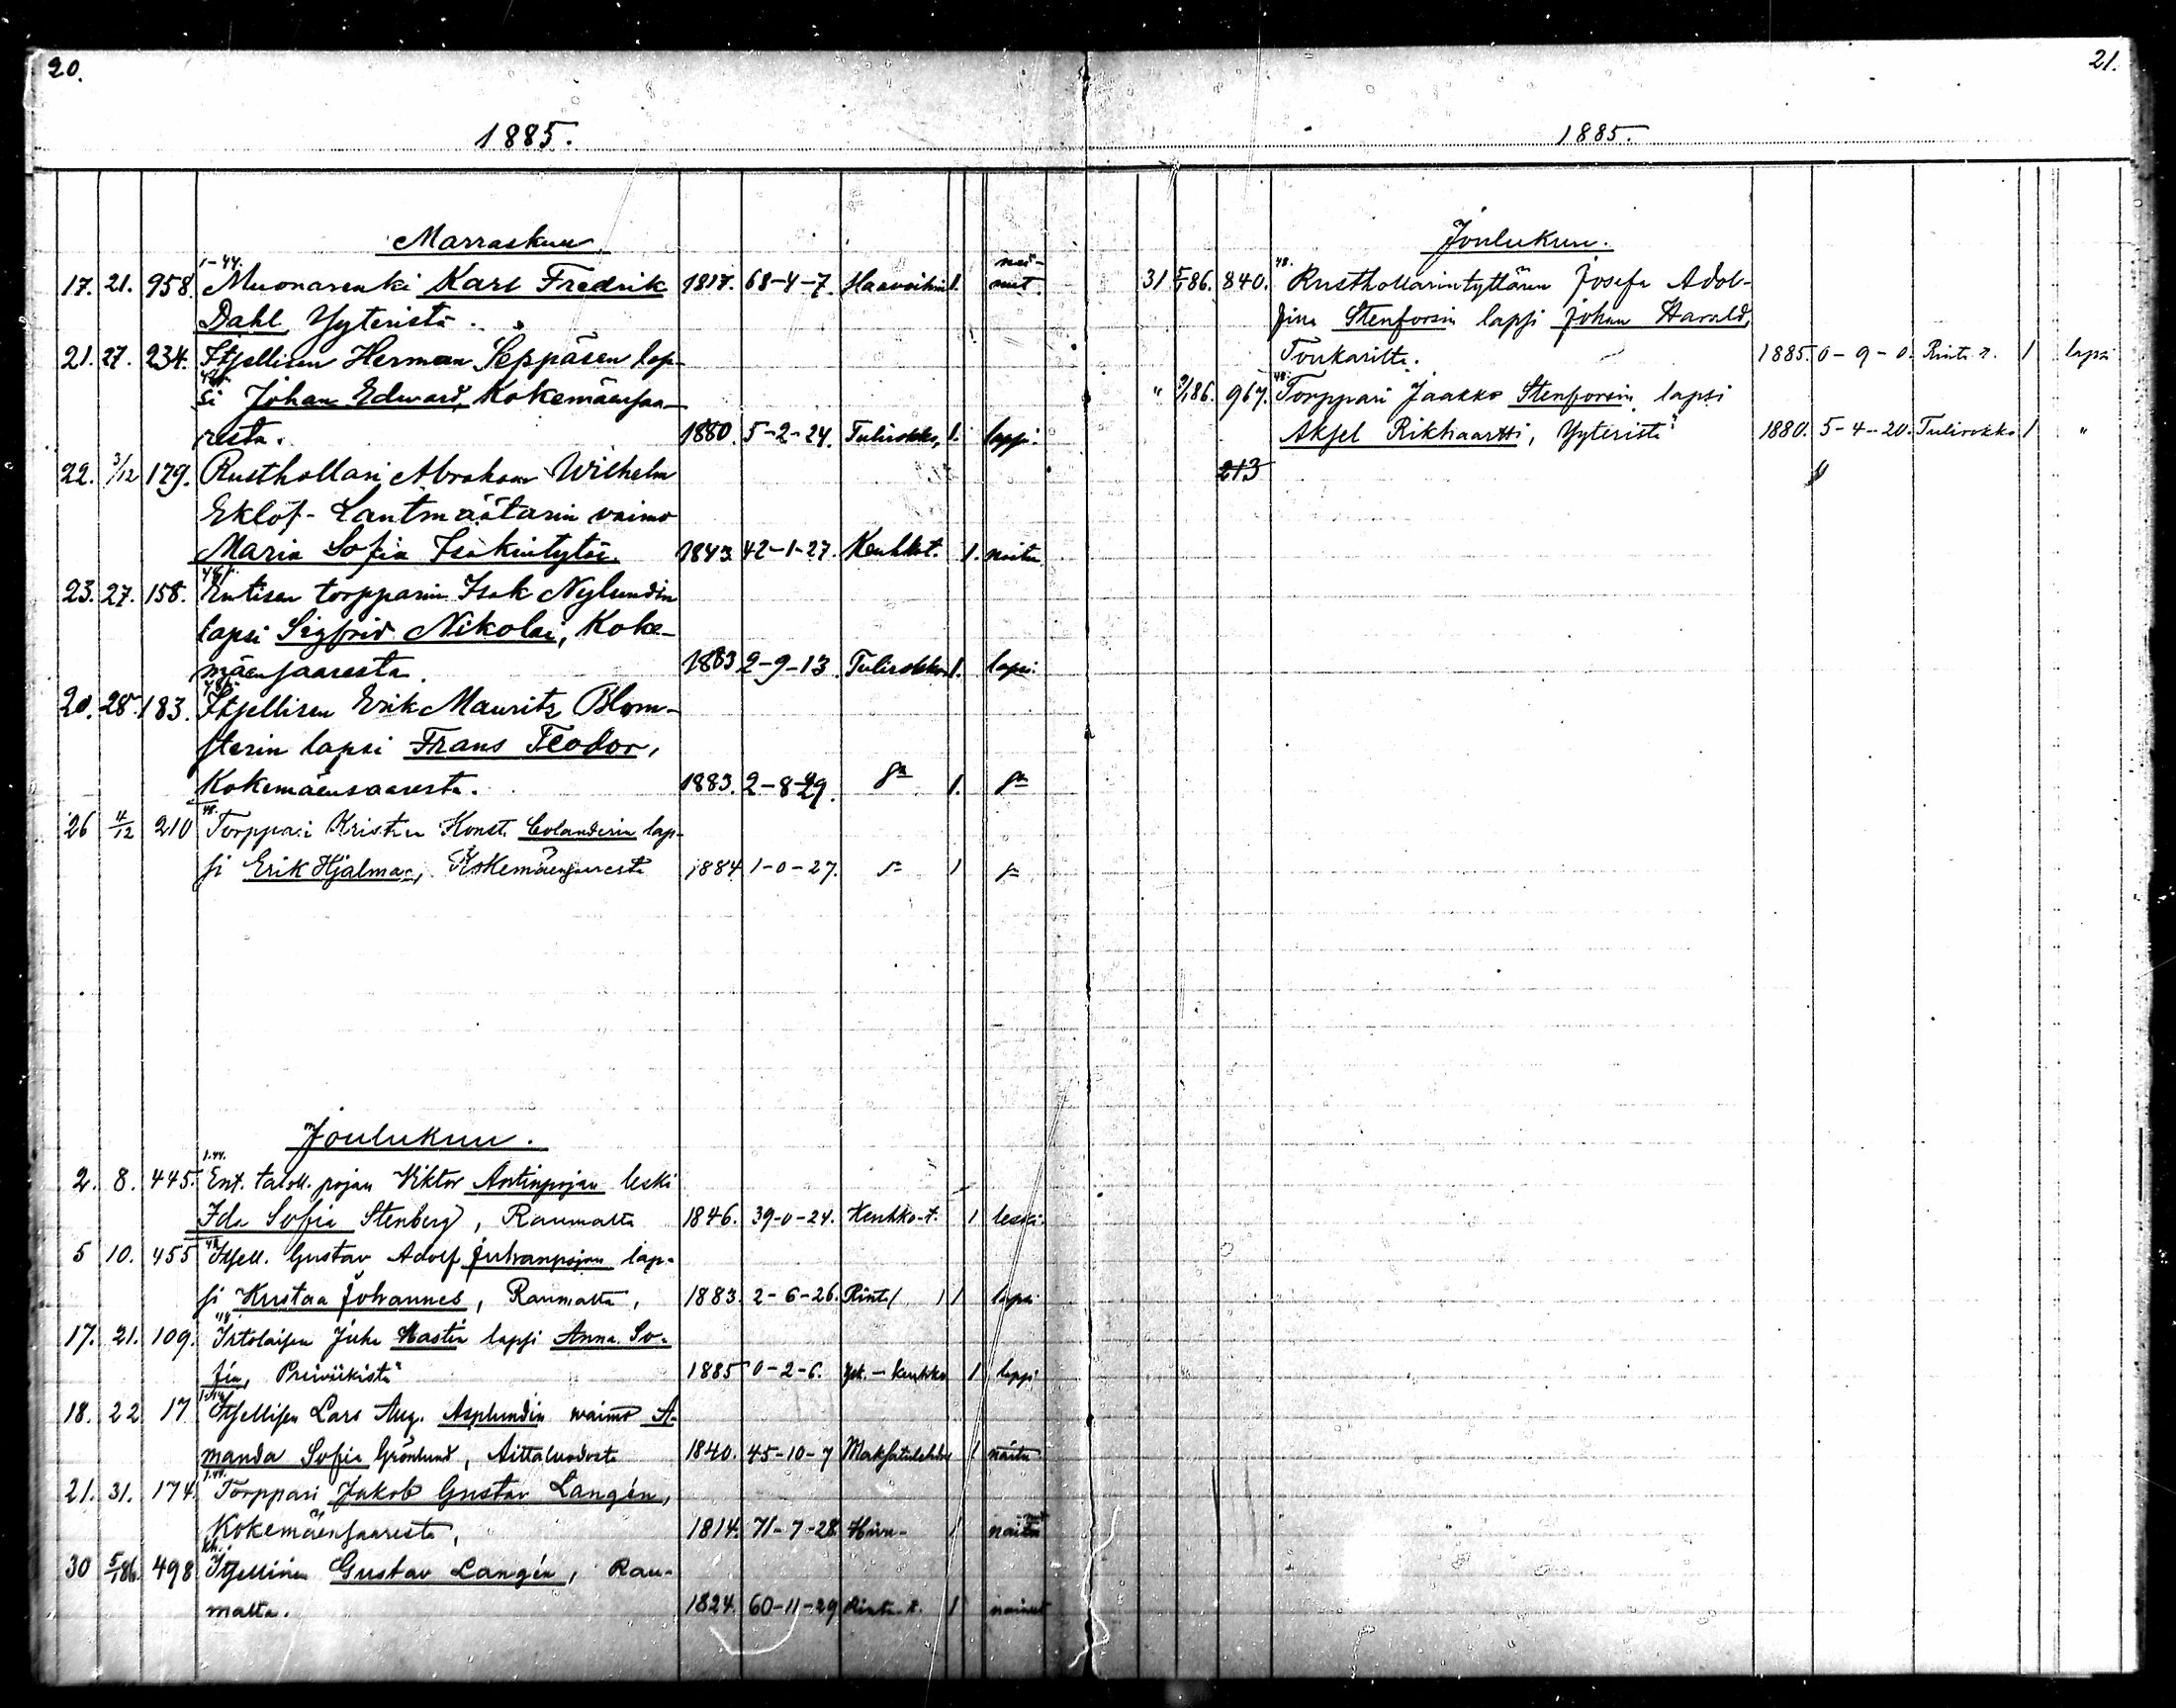 20.
1885.
Marraskuu
1-44.
nai-
17. 21. 958. Muonarenki Karl Fredrik 1817. 68-4-7. 1. nut.
Dahl, Yyteristä.
21. 27. 234. Itsellisen Herman Seppäsen lap-
si Johan Edward, Kokemäensaa-
resta. 1880. 5-2-24. Tulirokko, 1. lapsi.
22. 3/12 179. Rusthollari Abraham Wilhelm
Eklöf-Lantmäätarin vaimo
Maria Sofia Isakintytär. 1843 42-1-27. Keuhkot. 1. naitu
23. 27. 158. Entisen torpparin Isak Nylundin
lapsi Sigfrid Nikolai, Koke-
mäensaaresta. 1883 2-9-13. Tulirokko 1. lapsi.
20. 28. 183. Itsellisen Erik Mauritz Blom-
sterin lapsi Frans Teodor,
Kokemäensaaresta. 1883. 2-8-29. 1.
26 4/12 210 Torppari Kristian Konst. Colanderin lap-
si Erik Hjalmar, Kokemäensaaresta 1884 1-0-27. 1
Joulukuu.
1.44.
2. 8. 445. Ent. taloll. pojan Viktor Antinpojan leski
Ida Sofia Stenberg, Raumalta 1846. 39-0-24. Keuhko-t. 1 leski.
5 10. 455 Itsell. Gustav Adolf Juhanpojan lap-
si Kustaa Johannes, Raumalta, 1883. 2-6-26. Rint. 1 lapsi
17. 21. 109. Irtolaisen Juha Hastin lapsi Anna So-
fia, Preiviikistä 1885 0-2-6. 1 lapsi
18. 22 17 Itsellisen Lars Aug. Asplundin waimo A-
manda Sofia Grönlund, Aittaluodosta 1840. 45-10-7 1 naitu
1.44.
21. 31. 174. Torppari Jakob Gustav Langén,
Kokemäensaaresta, 1814. 71-7-28. 1
30 5/1 86. 498 Itsellinen Gustav Langén, Rau-
malta. 1824. 60-11-29 Rinta-t. 1 nainut
21.
1885.
Joulukuu.
48.
31 5/1 86. 840. Rusthollarintyttären Josefa Adol-
fina Stenforsin lapsi Johan Harald,
Toukarilta. 1885. 0-9-0. Rinta t. 1 lapsi
48.
" 9/1 86. 967. Torppari Jaakko Stenforsin lapsi
Aksel Rikhaartti, Yyteristä 1880. 5-4-20. Tulirokko 1 "
213